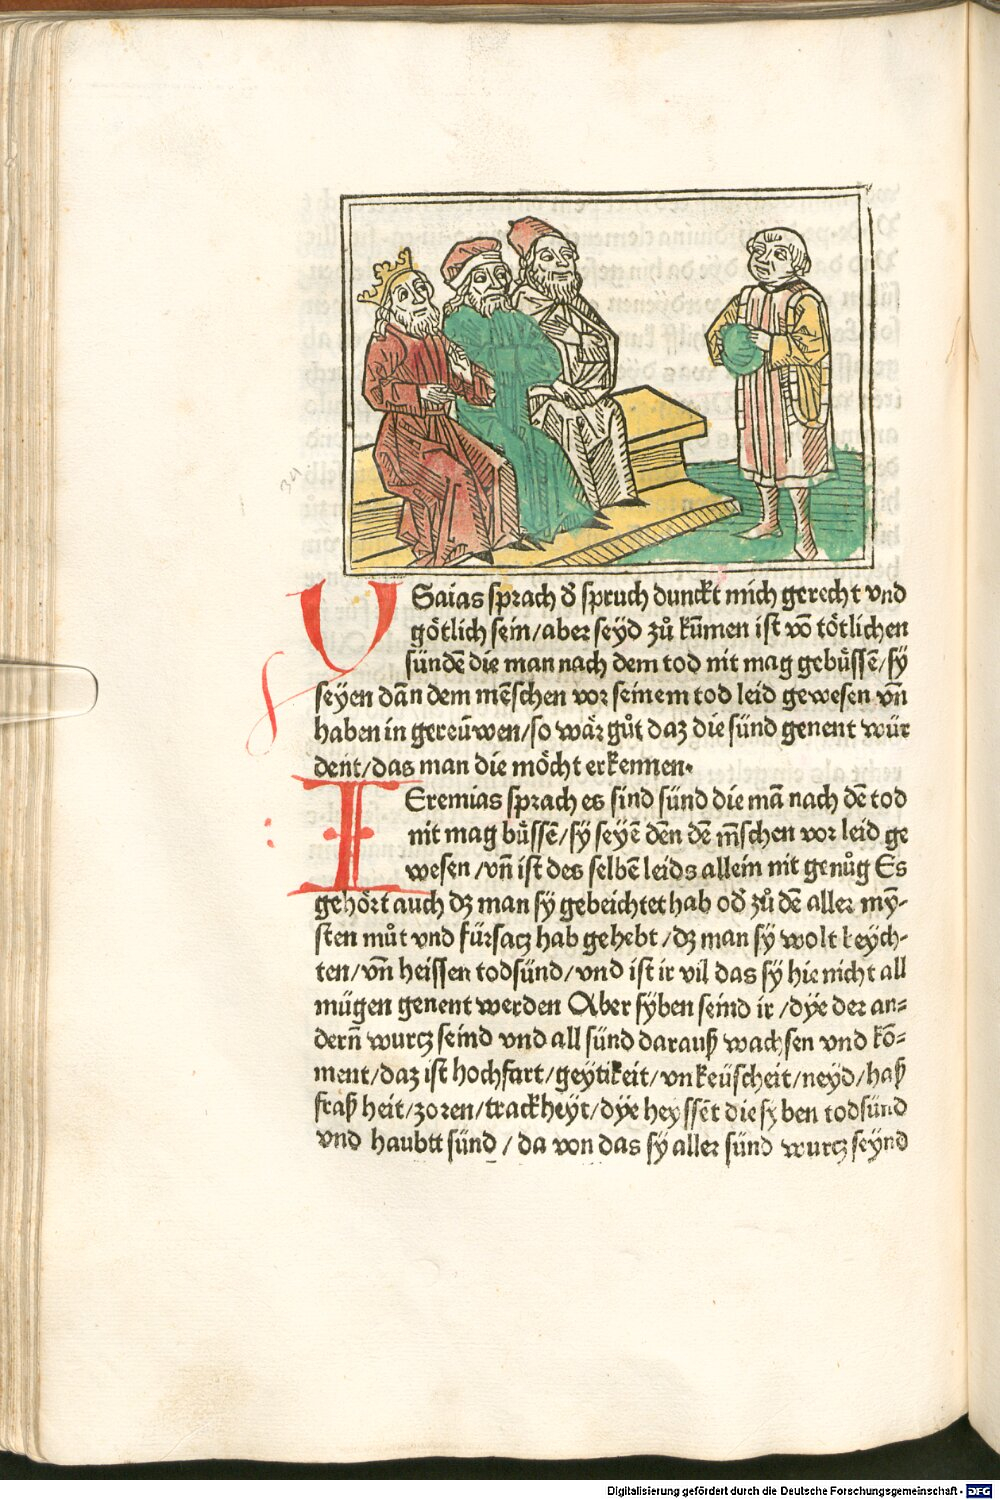 YSaias sprach d̕ spruch dunckt mich gerecht vnd
götlich sein/aber seyd zů kūmen ist vō tötlichen
sündē die man nach dem tod nit mag gebůssē/sÿ
seÿen dān dem mēschen vor seinem tod leid gewesen vn̄
haben in gereüwen/so wår gůt daz die sünd genent wür
dent/das man die möcht erkennen.
IEremias sprach es sind sünd die mā nach dē tod
nit mag bůssen/sÿ seyē dēn dē m̄schen vor leid ge
wesen/vn̄ ist des selbē leids allein nit genůg Es
gehört auch dz man sÿ gebeichtet hab od̕ zů dē aller mȳ-
sten můt vnd fürsacz hab gehebt/dz man sÿ wolt beÿch-
ten/vn̄ heissen todsünd/vnd ist ir vil das sÿ hie nicht all
mügen genent werden Aber sÿben seind ir/dÿe der an-
dern̄ wurcz seind vnd all sünd darauß wachsen vnd kō-
ment/daz ist hochfart/geÿtikeit/vnkeüscheit/neyd/haß
fraß heit/zoren/trackheÿt/dÿe heyssēt die sÿben todsünd
vnd haubtt sünd/da von das sÿ aller sünd wurcz seÿnd
34
Digitalisierung gefördert durch die Deutsche Forschungsgemeinschaft - DFG